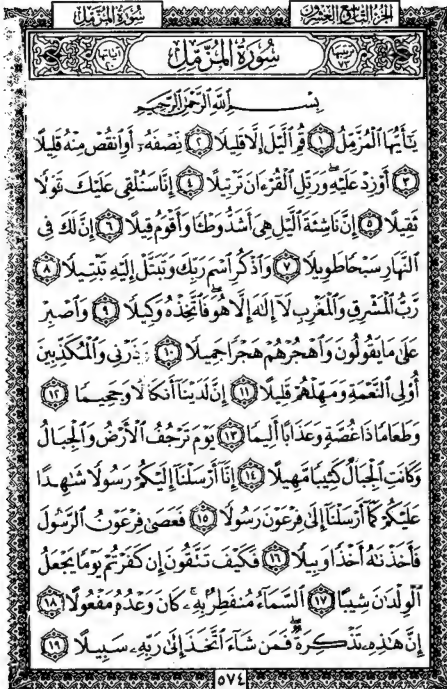 سُورَةُ المُزَّمِّل الجُزءُ التَّاسِعُ وَالعِشْرُونَ
سُورَةُ المُزَّمِّل
بِسْمِ اللَّهِ الرَّحْمَٰنِ الرَّحِيمِ
يَٰٓأَيُّهَا ٱلْمُزَّمِّلُ ١ قُمِ ٱلَّيْلَ إِلَّا قَلِيلًا ٢ نِّصْفَهُۥٓ أَوِ ٱنقُصْ مِنْهُ قَلِيلًا
٣ أَوْ زِدْ عَلَيْهِ وَرَتِّلِ ٱلْقُرْءَانَ تَرْتِيلًا ٤ إِنَّا سَنُلْقِى عَلَيْكَ قَوْلًا
ثَقِيلًا ٥ إِنَّ نَاشِئَةَ ٱلَّيْلِ هِىَ أَشَدُّ وَطْـًٔا وَأَقْوَمُ قِيلًا ٦ إِنَّ لَكَ فِى
ٱلنَّهَارِ سَبْحًا طَوِيلًا ٧ وَٱذْكُرِ ٱسْمَ رَبِّكَ وَتَبَتَّلْ إِلَيْهِ تَبْتِيلًا ٨
رَّبُّ ٱلْمَشْرِقِ وَٱلْمَغْرِبِ لَآ إِلَٰهَ إِلَّا هُوَ فَٱتَّخِذْهُ وَكِيلًا ٩ وَٱصْبِرْ
عَلَىٰ مَا يَقُولُونَ وَٱهْجُرْهُمْ هَجْرًا جَمِيلًا ١٠ وَذَرْنِى وَٱلْمُكَذِّبِينَ
أُو۟لِى ٱلنَّعْمَةِ وَمَهِّلْهُمْ قَلِيلًا ١١ إِنَّ لَدَيْنَآ أَنكَالًا وَجَحِيمًا ١٢
وَطَعَامًا ذَا غُصَّةٍ وَعَذَابًا أَلِيمًا ١٣ يَوْمَ تَرْجُفُ ٱلْأَرْضُ وَٱلْجِبَالُ
وَكَانَتِ ٱلْجِبَالُ كَثِيبًا مَّهِيلًا ١٤ إِنَّآ أَرْسَلْنَآ إِلَيْكُمْ رَسُولًا شَٰهِدًا
عَلَيْكُمْ كَمَآ أَرْسَلْنَآ إِلَىٰ فِرْعَوْنَ رَسُولًا ١٥ فَعَصَىٰ فِرْعَوْنُ ٱلرَّسُولَ
فَأَخَذْنَٰهُ أَخْذًا وَبِيلًا ١٦ فَكَيْفَ تَتَّقُونَ إِن كَفَرْتُمْ يَوْمًا يَجْعَلُ
ٱلْوِلْدَٰنَ شِيبًا ١٧ ٱلسَّمَآءُ مُنفَطِرٌۢ بِهِۦ كَانَ وَعْدُهُۥ مَفْعُولًا ١٨
إِنَّ هَٰذِهِۦ تَذْكِرَةٌ فَمَن شَآءَ ٱتَّخَذَ إِلَىٰ رَبِّهِۦ سَبِيلًا ١٩
٥٧٤